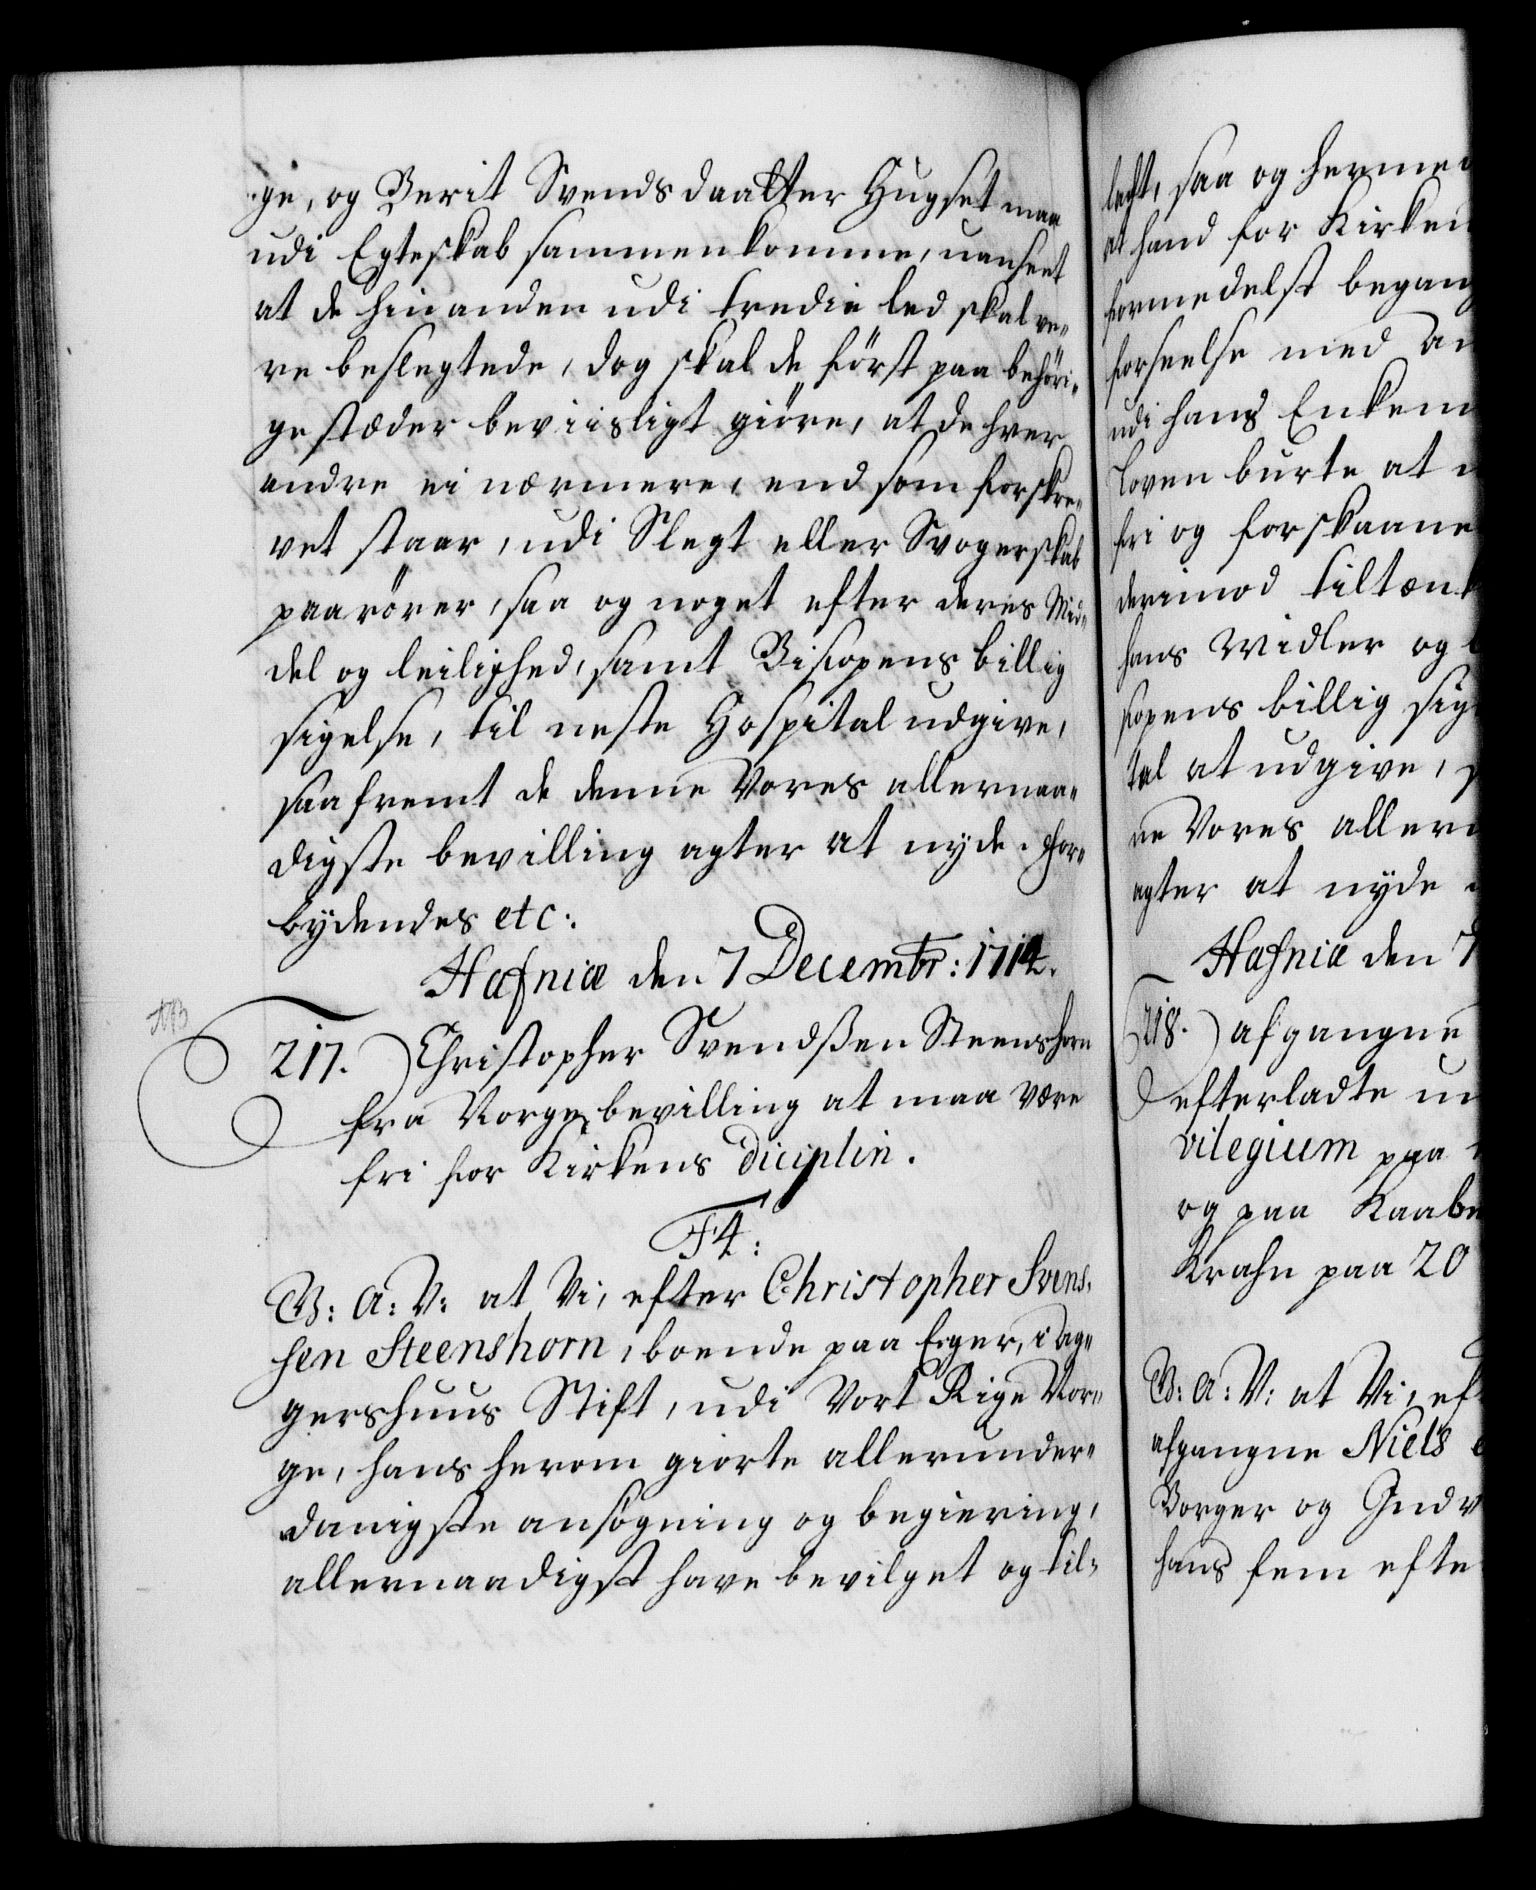 ge, og Berit Svends daatter Hugset maa
udi Egteskab sammenkomme, uanseet
at de hinanden udi tredie led skal ve-
re beslegtede, dog skal de först paa behöri-
ge stæder beviisligt giöre, at de hver
andre ei nærmere, end som forskre-
vet staar, udi Slegt eller Svogerskab
paarörer, saa og noget efter deres Mid-
del og leilighed, samt Biscopens billig
sigelse, til neste Hospital udgive,
saafremt de denne Vores allernaa-
digste bevilling agter at nyde. For-
bydendes etc:
Hafniæ den 7 Decembr: 1714.
NB
217. Christopher Svendßen Steenshorn
fra Norge, bevilling at maa være
fri for Kirkens Diciplin.
F4:
V: A: V: at Vi, efter Christopher Svens-
sen Steenshorn, boende paa Eger, i Ag-
gershuus Stift, udi Vort Rige Nor-
ge, hans herom giorte allerunder-
danigste ansögning og begiering,
allernaadigst have bevilget og til-
ladt, saa og herme
at hand for Kirken
formedelst begang
forseelse med An
udi hans Enkem
Loven burte at
fri og forskaane
derimod tiltænk
hans Midler og
scopens billig sig
tal at udgive,
ne Vores allern
agter at nyde
Hafniæ den 7
218. afgangne
efterladte um
vilegium paa
og paa Kaabe
Krahn paa 20
V: A: V: at Vi, eft
afgangne Niels
Borger og Indv
hans fem efte